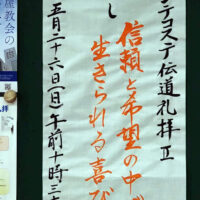 ンテコステ伝道礼拝 Ⅱ
し
信頼と希望の中で
生きられる喜び
五月二十六日(日)午前十時三十
屋教会の